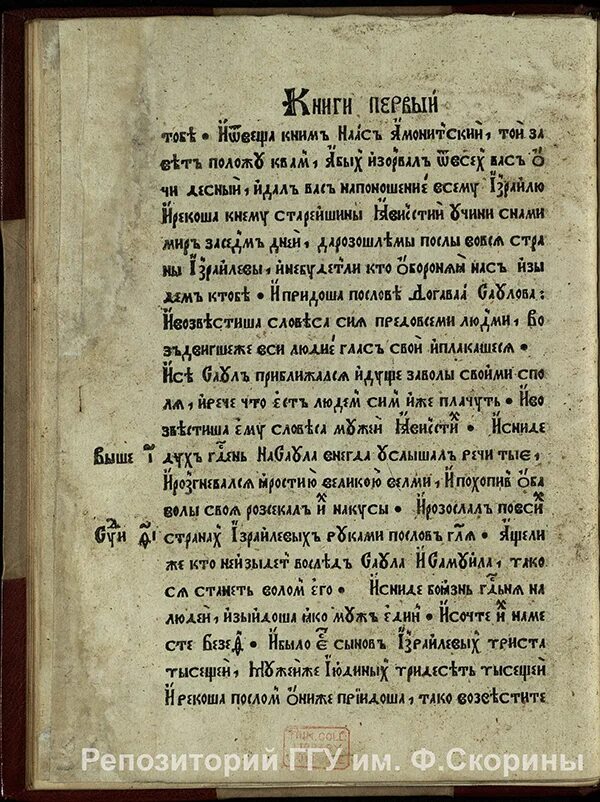 Книги первый
тобѣ • Иѿвеща книмъ Наасъ Амонитский, той за
вѣтъ положу квам̾, Абых̾ изорвал̾ ѿвсех̾ васъ о
чи десный, идалъ васъ напоношение̾ всему Їзраилю
Ирекоша кнему старейшины Ꙗвисстии учини снами
миръ заседмъ дней, дарозошлемы послы вовся стра
ны Їзраилевы, инебудетли кто обороняꙗ насъ изы
демъ ктобе • Ипридоша пословѣ Догаваа Саулова :
Ивозвѣстиша словѣса сия предовсеми людми, Во
зъдвигшеже вси людие гласъ свой иплакашеся •
Исѣ Саулъ приближаася идуще заволы своими спо
ля, ирече что естъ людем̾ сим̾ иже плачуть • Иво
звѣстиша ему словѣса мужей Ꙗвисстих • Исниде
Выше і҃ духъ гдень НаСаула внегда услышал̾ речи тые,
Иразгневался ꙗростию великою велми, Ипохопив̾ оба
волы своя розсекал̾ их накусы • Ирозослал̾ повсих
Суди ѳ҃і странах̾ Їзраилевых̾ руками пословъ гл҃я • Ащели
же кто неизыдет̾ вослѣдъ Саула ИСамуила, тако
ся станеть волом̾ его • Исниде боꙗзнь гдьня на
людей, иизыйдоша ꙗко мужъ един̾ • Исочте их наме
сте Везед̾ • Ибыло ест̾ сыновъ Їзраилевых̾ триста
тысещей, Мужейже Їюдиных̾ тридесѣть тысещей
Ирекоша послом̾ ониже приидоша, тако возвѣстите
Репозиторий ГГУ им. Ф.Скорины